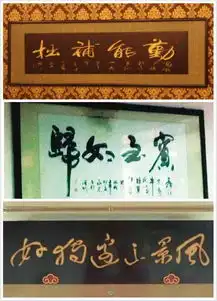 勤能補拙
賓至如歸
風景這邊獨好